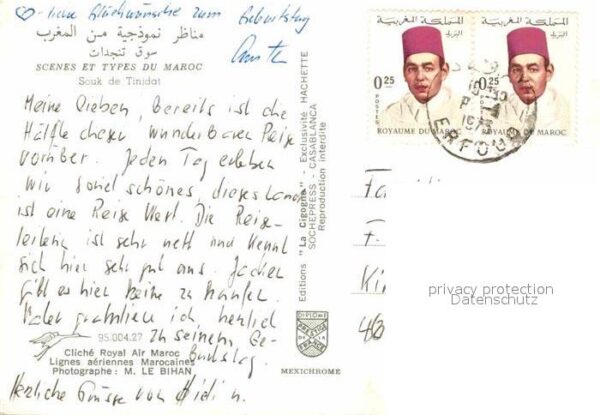 liebe Glückwünsche zum Geburtstag
مناظر نموذجية من المغرب
سوق تنجدات
SCENES ET TYPES DU MAROC
Souk de Tinjdat
Meine Lieben, bereits ist die
Hälfte dieser wunderbaren Reise
vorüber. Jeden Tag erleben
wir soviel schönes, dieses Land
ist eine Reise Wert. Die Reise-
leiterin ist sehr nett und kennt
sich hier sehr gut aus. Jacken
gibt es hier keine zu kaufen.
Vater gratuliere ich herzlich
zu seinem Ge-
burtstag.
Herzliche Grüsse von Heidi u.
95.004.27
Cliché Royal Air Maroc
Lignes aériennes Marocaines
Photographe : M. LE BIHAN
Editions "La Cigogne" - Exclusivité HACHETTE
SOCHEPRESS - CASABLANCA
Reproduction interdite
DIPLOME
PRESTIGE
DE LA
FRANCE
MEXICHROME
المملكة المغربية
البريد
0.25
POSTES
ROYAUME DU MAROC
المملكة المغربية
البريد
0.25
ROYAUME DU MAROC
ERFOUD
Fa
F.
Ki
46
privacy protection
Datenschutz